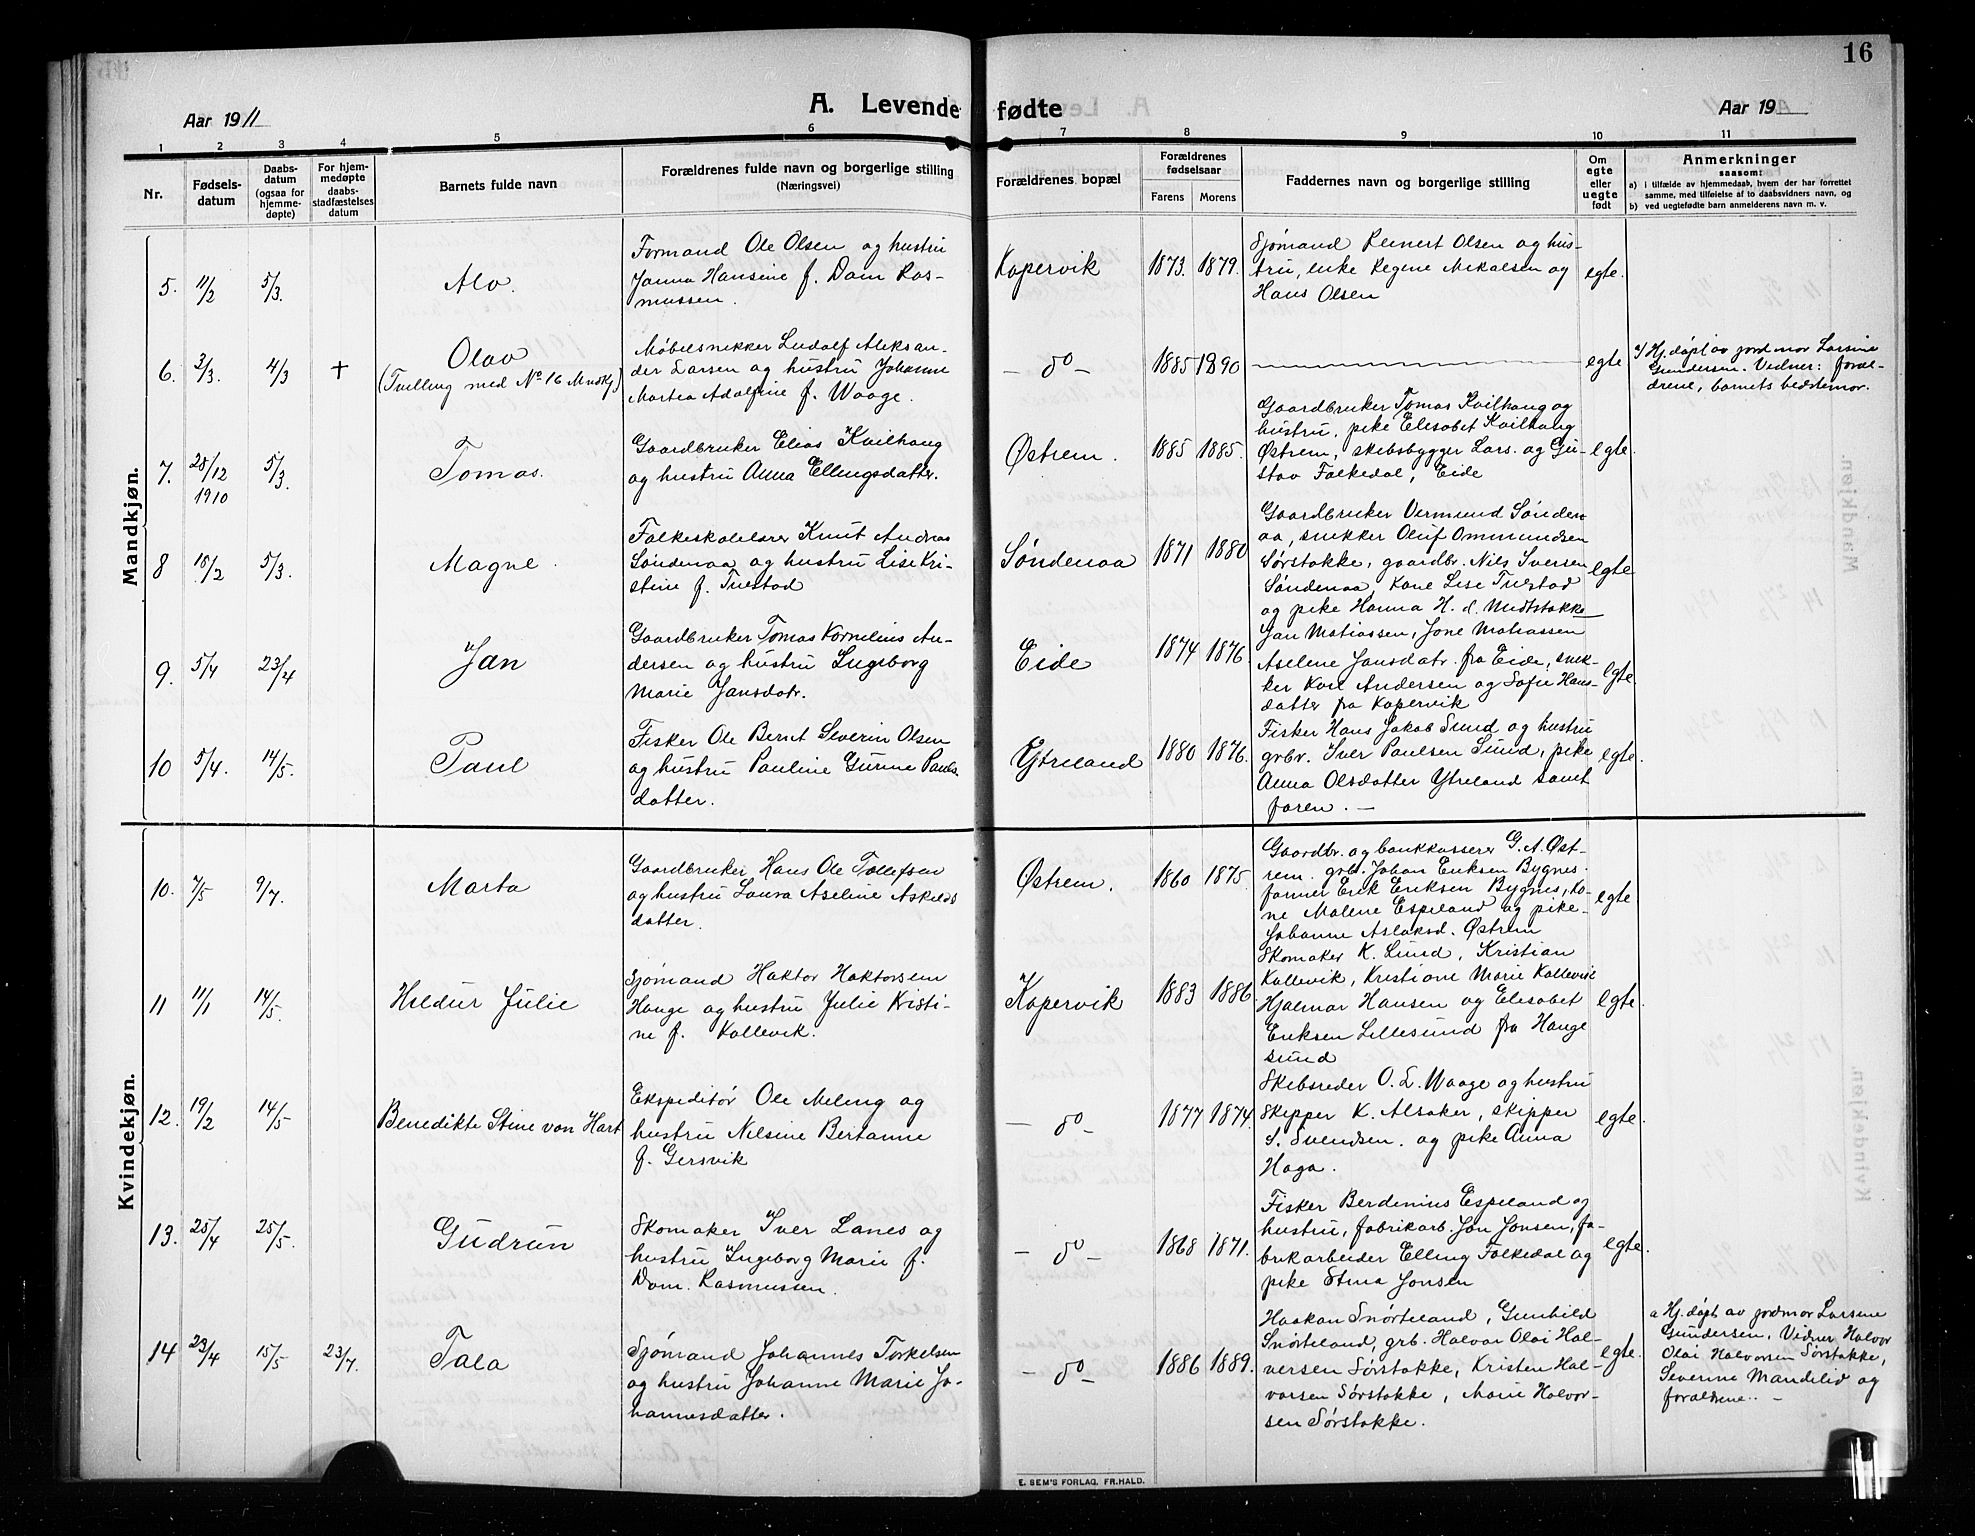 16
A. Levende fødte
Aar 1911
Aar 19
1 2 3 4 5 6 7 8 9 10 11
Nr.
Fødsels-
datum
Daabs-
datum
(ogsaa for
hjemme-
døpte)
For hjem-
medøpte
daabs-
stadfæstelses
datum
Barnets fulde navn
Forældrenes fulde navn og borgerlige stilling
(Næringsvei)
Forældrenes bopæl
Forældrenes
fødselsaar
Farens Morens
Faddernes navn og borgerlige stilling
Om
egte
eller
uegte
født
Anmerkninger
saasom:
a) i tilfælde av hjemmedaab, hvem der har forrettet
samme, med tilføielse af to daabsvidners navn, og
b) ved uegtefødte barn anmelderens navn m. v.
Mandkjøn.
5. 11/2 5/3. Alv.
Formand Ole Olsen og hustru
Janna Hansine f. Dam Ras-
mussen.
Kopervik 1873. 1879.
Sjømand Reinert Olsen og hus-
tru, enke Regine Mikalsen og
Hans Olsen
egte.
6. 3/3. 4/3 + Olav
(Tvilling med No 16 Mndkj)
Møbelsnekker Ludolf Aleksan-
der Larsen og hustru Johanne
Martea Adolfine f. Waage.
- do - 1885 1890
egte
a) Hj.døpt av jordmor Larsine
Gundersen. Vidner: foræl-
drene, barnets bedstemor.
7. 28/12 5/3. Tomas.
1910
Gaardbruker Elias Kvilhaug
og hustru Anna Ellingsdatter.
Østrem. 1885 1885.
Gaardbruker Tomas Kvilhaug og
hustru, pike Elisabet Kvilhaug
Østrem, skibsbygger Lars. og Gu-
stav Falkedal, Eide
egte.
8 18/2 5/3. Magne.
Folkeskolelærer Knut Andreas
Søndenaa og hustru Lise Kri-
stine f. Tuestad
Søndenaa 1871 1880
Gaardbruker Vermund Sønden-
aa, snekker Oluf Ommundsen
Sørstokke, gaardbr. Nils Iversen
Søndenaa, kone Lise Tuestad
og pike Hanna H. d. Midtstokke
egte
9. 5/4 23/4 Jan
Gaardbruker Tomas Kornelius An-
dersen og hustru Ingeborg
Marie Jansdatr.
Eide 1874 1876.
Jan Matiassen, Jone Matiassen
Aselene Jansdatr. fra Eide, snek-
ker Karl Andersen og Sofie Hans-
datter fra Kopervik
egte.
10 5/4. 14/5. Paul
Fisker Ole Bernt Severin Olsen
og hustru Pauline Gurine Pauls-
datter.
Ytreland 1880 1876.
Fisker Hans Jakob Sund og hustru
grbr. Iver Paulsen Sund, pike
Anna Olsdatter Ytreland samt
faren. —
egte.
Kvindekjøn.
10. 7/5 9/7. Marta
Gaardbruker Hans Ole Tollefsen
og hustru Laura Aseline Askilds
datter.
Østrem. 1860 1875.
Gaardbr. og bankkasserer G. A. Øst-
rem. grb. Johan Eriksen Bygnes.
farmer Erik Eriksen Bygnes, ko-
ne Malene Espeland og pike-
Johanne Aslaksd. Østrem
egte
11 11/1 14/5. Hildur Julie
Sjømand Haktor Haktorsen
Hauge og hustru Julie Kristi-
ne f. Kallevik.
Kopervik 1883 1886.
Skomaker K. Lund, Kristian
Kallevik, Kristiane Marie Kallevik
Hjalmar Hansen og Elisabet
Eriksen Lillesund fra Hauge
sund
egte
12. 19/2 14/5 Benedikte Stine von Hart
Ekspeditør Ole Meling og
hustru Nilsine Bertanne
f. Gersvik
- do - 1877 1874.
Skibsreder O. L. Waage og hustru
Skipper K. Alsaker, skipper
S. Svendsen. og pike Anna
Haga.
egte.
13. 25/4 25/5. Gudrun
Skomaker Iver Lanes og
hustru Ingeborg Marie f.
Dom. Rasmussen.
- do - 1868 1871.
Fisker Berdinius Espeland og
hustru, fabrikarb. Jan Jonsen, fa-
brikarbeider Elling Falkedal og
pike Stina Jonsen
egte.
14 23/4 15/5 23/7. Tala
Sjømand Johannes Torkelsen
og hustru Johanne Marie Jo-
hannesdatter.
- do - 1886 1889.
Haakon Snørteland, Gunhild
Snørteland, grb. Halvar Olai Hal-
versen Sørstokke, Kristen Hal-
vorsen Sørstokke, Marie Halvor-
sen Sørstokke.
egte.
a Hj. døpt av jordmor Larsine
Gundersen, Vidner Halvor
Olai Halvorsen Sørstokke,
Severine Mandelid og
forældrene.. -
E. SEM'S FORLAG, FR.HALD.